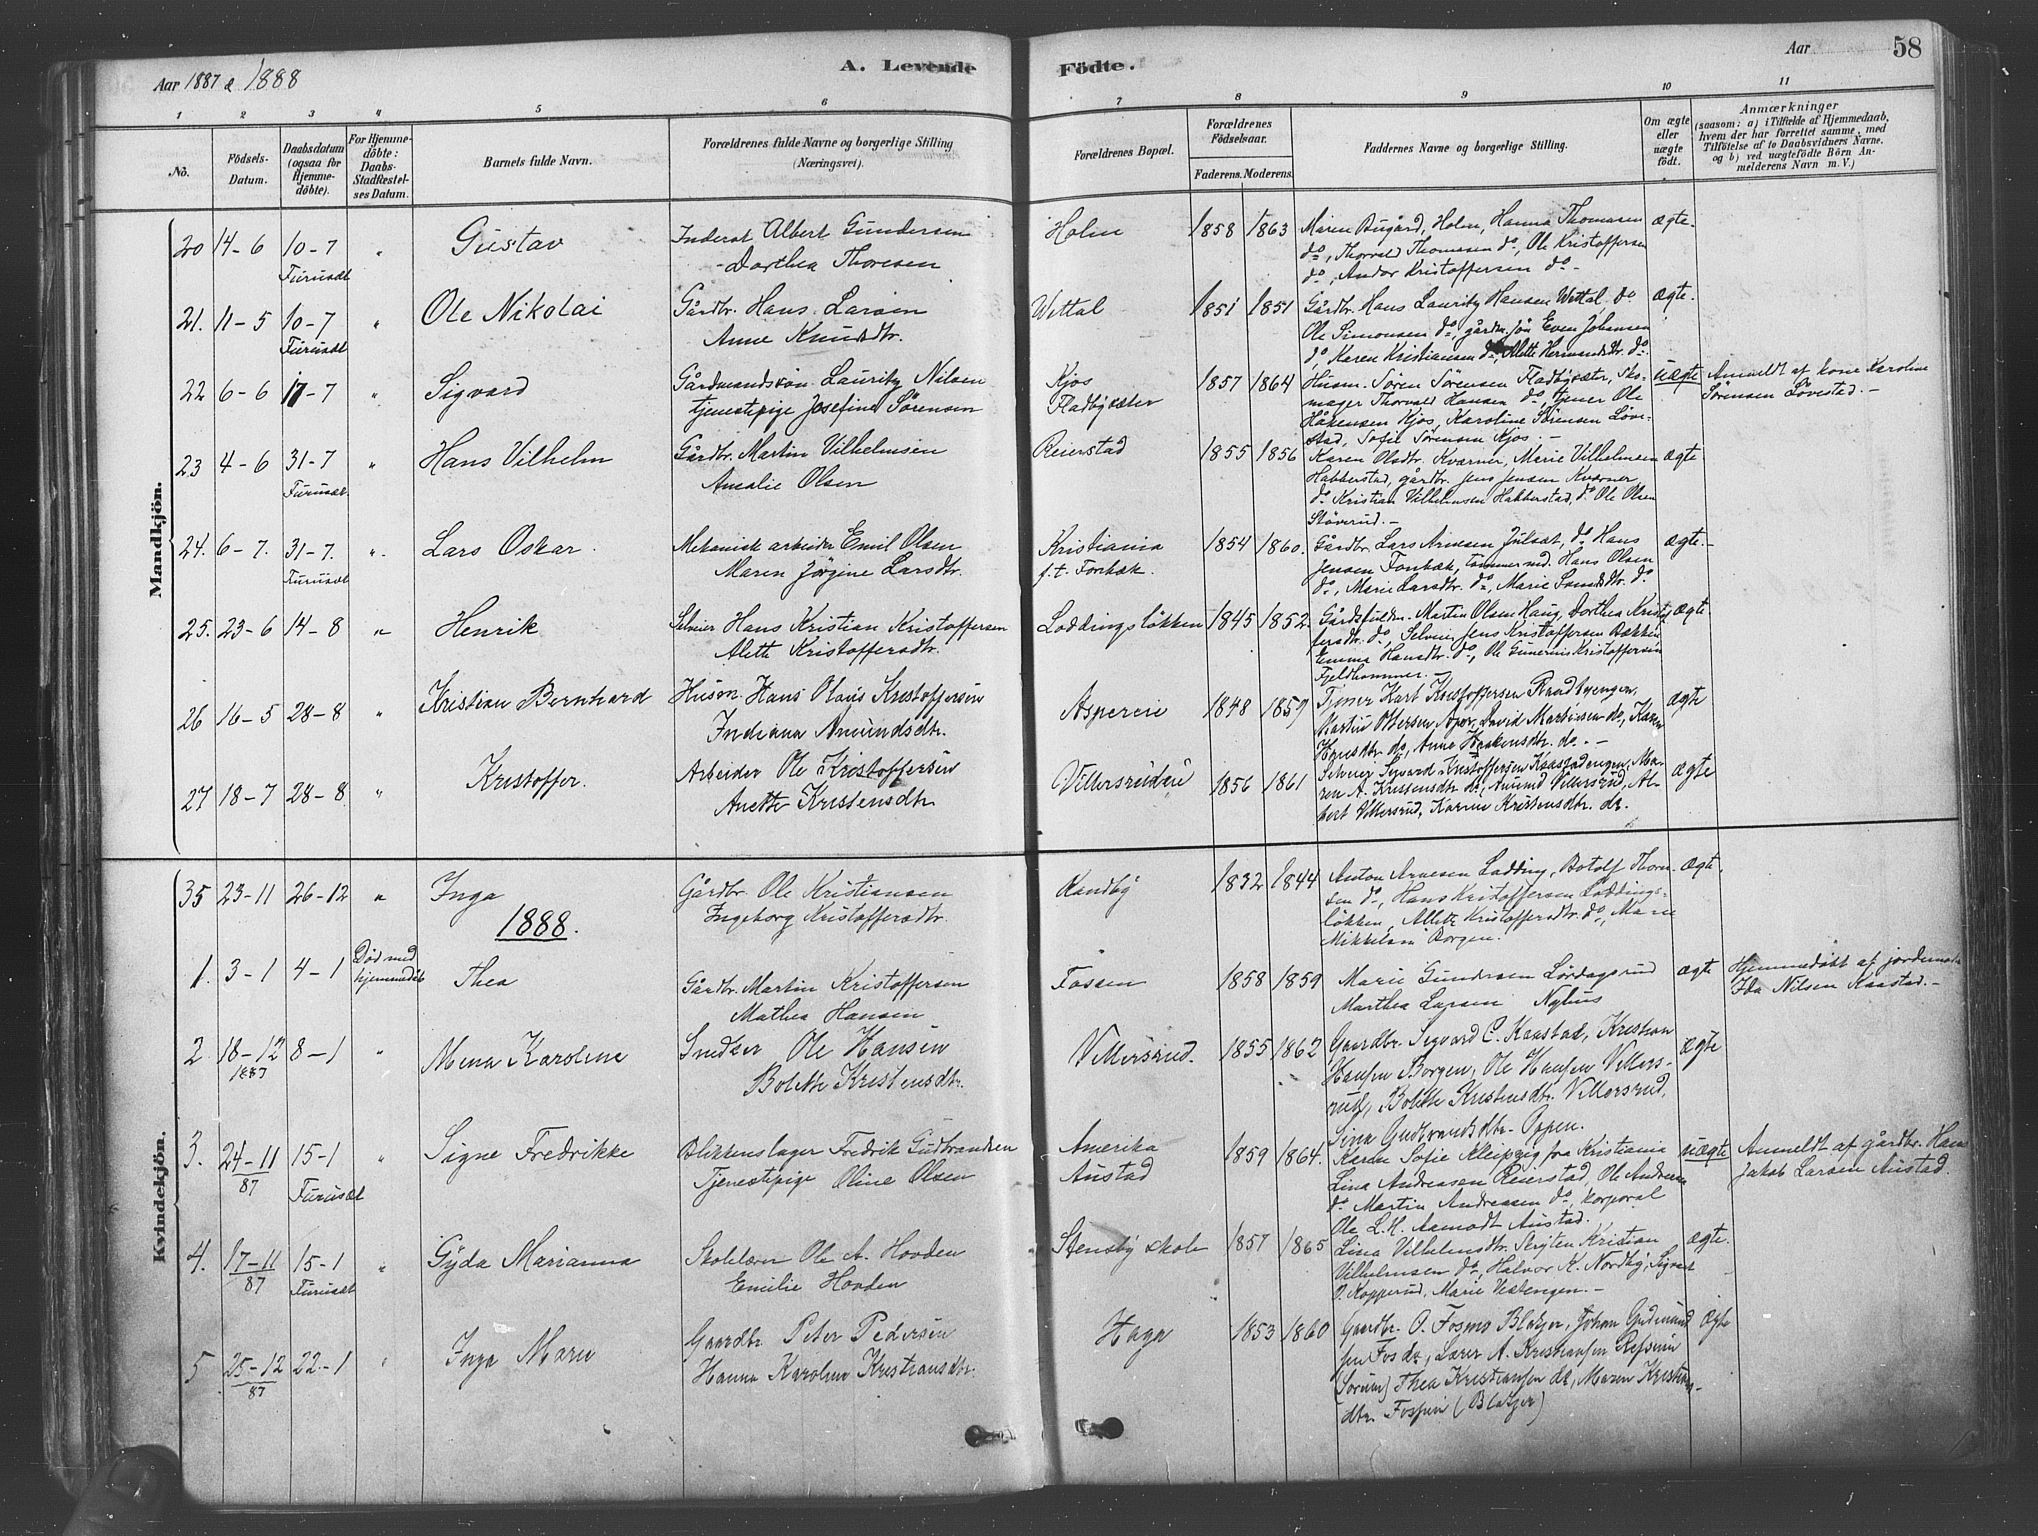 Aar 1887 & 1888
A. Levende
Födte.
Aar
58
1 2 3 4 5 6 7 8 9 10 11
No.
Födsels-Datum.
Daabsdatum (ogsaa for Hjemmedöbte).
For Hjemmedöbte: Daabs-Stadfæstelses Datum.
Barnets fulde Navn.
Forældrenes fulde Navne og borgerlige Stilling (Næringsvei).
Forældrenes Bopæl.
Forældrenes Födselsaar.
Faderens. Moderens.
Faddernes Navne og borgerlige Stilling.
Om ægte eller uægte födt.
Anmærkninger (saasom: a) i Tilfælde af Hjemmedaab, hvem der har forrettet samme, med Tilföielse af to Daabsvidners Navne, og b) ved uægtefödte Börn Anmelderens Navn m. V.)
Mandkjön.
20 14-6 10-7 Furusæt " Gustav Inderst Albert Gundersen Holm 1858 1863 Maren Bugård, Holm, Hanna Thomasen ægte.
- Dorthea Thoresen do, Thorvald Thomasen do, Ole Kristoffersen
do, Andor Kristoffersen do -
21. 11-5 10-7 Furusæt " Ole Nikolai Gårdbr. Hans Larsen Wettal 1851 1851 Gårdbr. Hans Lauritz Hansen Wettal do ægte.
Anne Knudsdtr. Ole Simonsen do, gårdm. søn Even Johansen
do, Karen Kristiansen do, Alette Hermundsdtr. do.
22 6-6 17-7 " Sigvard Gårdmandssøn Lauritz Nilsen Kjos 1857 1864 Husm. Søren Sørensen Fladbysæter, Sko- uægte Anmeldt af kone Karoline
tjenestepige Josefine Sørensen Fladbysæter mager Thorvald Hansen do, tjener Ole Sørensen Løvestad. -
Håkensen Kjos, Karoline Sørensen Løve-
stad, Sofie Sørensen Kjos. -
23 4-6 31-7 Furusæt " Hans Vilhelm Gårdbr. Martin Vilhelmsen Reierstad 1855 1856 Karen Olsdtr. Kværner, Marie Vilhelmsen ægte
Amalie Olsen Habberstad, gårdbr. Jens Jensen Kværner
do Kristian Vilhelmsen Habberstad, do Ole Olsen
Støverud. -
24. 6-7. 31-7. Furusæt ". Lars Oskar. Mekanisk arbeider Emil Olsen Kristiania 1854 1860. Gårdbr. Lars Arnesen Julsæt, do Hans ægte. -
Maren Jørgine Larsdtr. f.t. Fonbæk. Jensen Fonbæk, tømmermd. Hans Olsen
do, Marie Larsdtr. do, Marie do
25. 23-6 14-8 " Henrik Selveier Hans Kristian Kristoffersen Løddingsløkken 1845 1852. Martin Olsen Haug, Dorthea Kristof- ægte.
Alette Kristoffersdtr. fersdtr. do, Selveier Jens Kristoffersen Bakken
Emma Hansdtr. do, Ole Gunerius Kristoffersen
Fjeldhammer. -
26 16-5 28-8 " Kristian Bernhard Husm. Hans Olaus Kristoffersen Aspereie 1848 1859 Tjener Kart Kristoffersen ægte
Indiana Amundsdtr. Martin Ottersen Asper, David Martinsen do, Karen
Hansdtr. do, Anne Haakensdtr. do. -
27 18-7 28-8 " Kristoffer. Arbeider Ole Kristoffersen Villersrudeie 1856 1861 Selveier Sigvard Kristoffersen Kaastadengen, Ma- ægte
Anette Kristensdtr ren A. Kristensdtr do, Amund Villersrud, Al-
bert Villersrud, Karine Kristensdtr. do.
Kvindekjön.
35 23-11 26-12 " Inga Gårdbr. Ole Kristiansen Randby 1832 1844 Anton Arnesen Lødding, Botolf Thom- ægte.
Ingeborg Kristoffersdtr. sen do, Hans Kristoffersen Løddings-
løkken, Alette Kristoffersdtr. do, Marie
Mikkelsen Borgen.
1888.
1. 3-1 4-1 Død med hjemmedåb Thea Gårdbr. Martin Kristoffersen Fossen 1858 1859 Marie Gundersen Lørdagsrud ægte Hjemmedøbt af jordemoder
Mathea Hansen Marthea Larsen Nyhus Ida Nilsen Kaastad. -
2 18-12 1887 8-1 " Mena Karoline Snedker Ole Hansen Villersrud. 1855 1862 Gaardbr. Sigvard C. Kaastad, Kristian ægte
Bolette Kristensdtr. Hansen Borgen, Ole Hansen Villers-
rud, Bolette Kristensdtr. Villersrud,
Lina Gudbrandsdtr. Oppen.
3. 24-11 87 15-1 Furusæt " Signe Fredrikke Blikkenslager Fredrik Gudbrandsen Amerika 1859 1864. Karen Sofie Kleipzig fra Kristiania uægte Anmeldt af gårdbr. Hans
Tjenestepige Oline Olsen Austad Lina Andreasen Reierstad, Ole Andreasen Jakob Larsen Austad.
do Martin Andreasen do, korporal
Ole L. H. Aamodt Austad.
4. 17-11 87 15-1 Furusæt " Gyda Marianna Skolelærer Ole A. Hovden Stensby skole 1857 1865 Lina Vilhelmsdtr. Kristian ægte.
Emilie Hovden Vilhelmsen do, Halvor K. Nordby, Sigvart
O. Kopperud, Marie Vestengen. -
5 25-12 87 22-1 " Inga Marie Gaardbr. Peter Pedersen Haga 1853 1860 Gaardbr. O. Fosmo Blakjer, Johan Gudmund ægte
Hanna Karoline Kristiansdtr. sen Fos do, Lærer A. Kristiansen Refsum
(Sørum) Thea Kristiansen do, Maren Kristians-
dtr. Fossen (Blakjer)